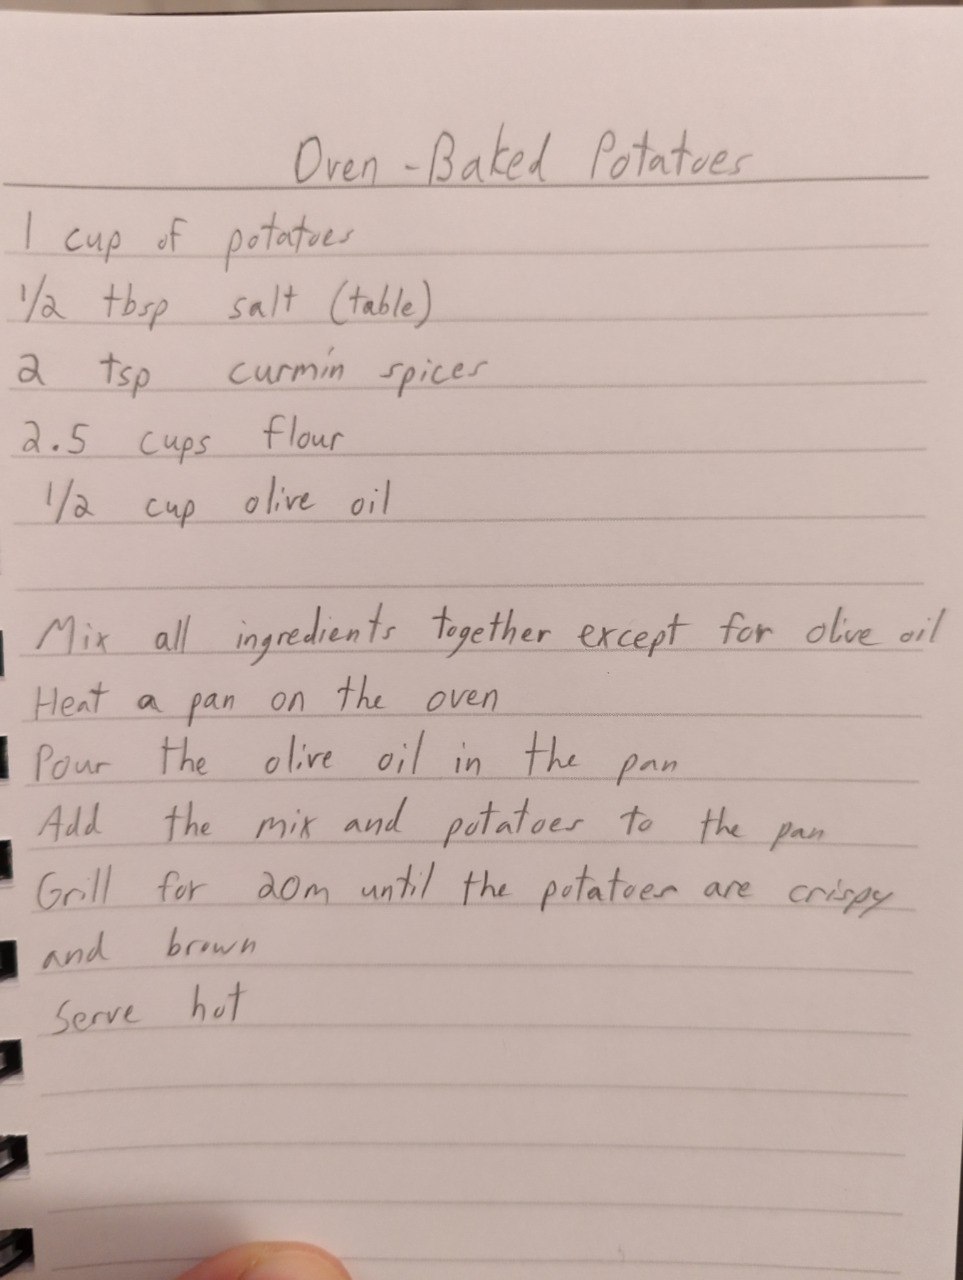 Oven-Baked Potatoes
1 cup of potatoes
1/2 tbsp salt (table)
2 tsp curmin spices
2.5 cups flour
1/2 cup olive oil
Mix all ingredients together except for olive oil
Heat a pan on the oven
Pour the olive oil in the pan
Add the mix and potatoes to the pan
Grill for 20m until the potatoes are crispy
and brown
Serve hot